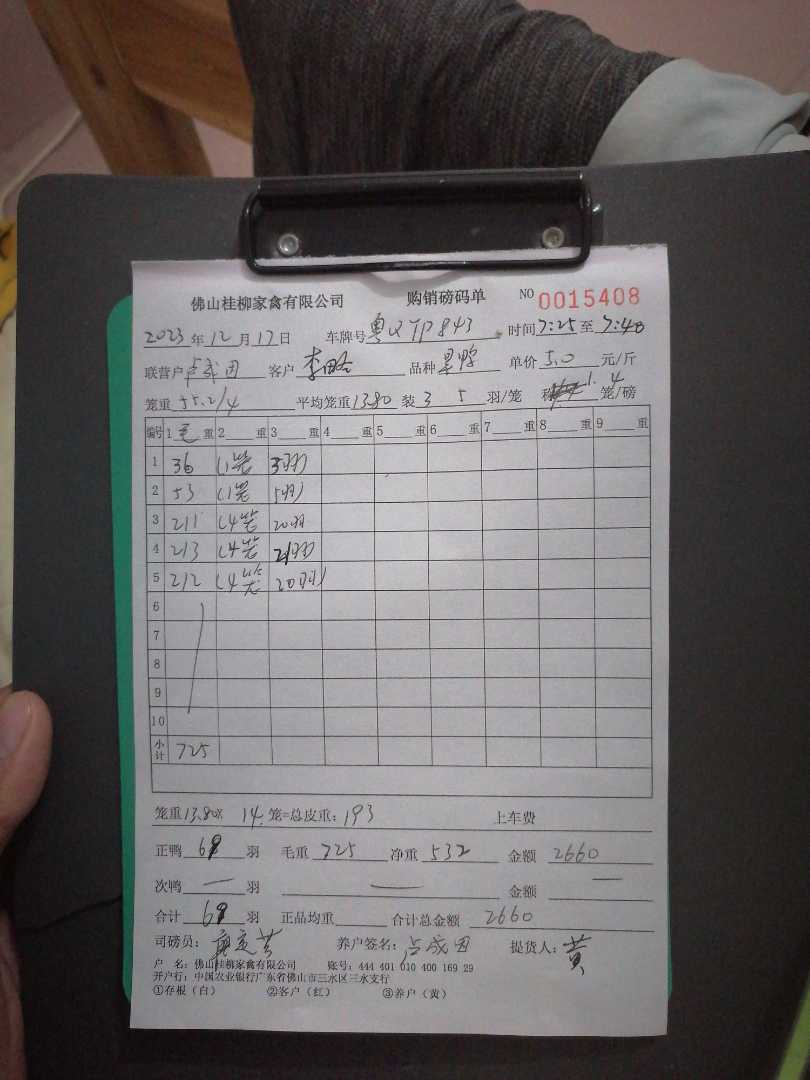 佛山桂柳家禽有限公司 购销磅码单 NO 0015408
2023年12月17日 车牌号 粤QTP843 时间7:25至7:48
联营户 客户 李 品种 单价5.0元/斤
笼重55.2/4 平均笼重13.80 装3 5羽/笼 1.4笼/磅
编号 1毛重 2重 3重 4重 5重 6重 7重 8重 9重
1 36 (1笼 3羽)
2 53 (1笼 5羽)
3 211 (4笼 20羽
4 213 (4笼 21羽)
5 212 (4笼 20羽)
6
7
8
9
10
小计 725
笼重13.80× 14.笼=总皮重:193 上车费
正鸭69羽 毛重725 净重532 金额2660
次鸭—羽 — 金额—
合计69羽 正品均重 合计总金额2660
司磅员: 养户签名: 成 提货人:黄
户 名:佛山桂柳家禽有限公司 账号:444 401 010 400 169 29
开户行:中国农业银行广东省佛山市三水区三水支行
①存根(白) ②客户(红) ③养户(黄)